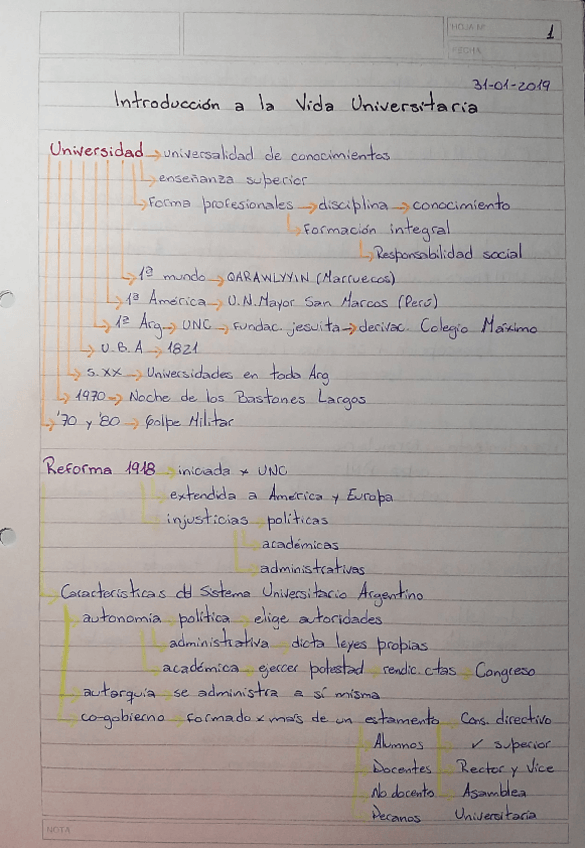 HOJA Nº 1
FECHA
31-01-2019
Introducción a la Vida Universitaria
Universidad → universalidad de conocimientos
→ enseñanza superior
→ forma profesionales → disciplina → conocimiento
→ formación integral
→ Responsabilidad social
→ 1ª mundo → QARAWLYYIN (Marruecos)
→ 1ª América → U.N.Mayor San Marcos (Perú)
→ 1ª Arg → UNC → fundac. jesuita → derivac. Colegio Máximo
→ U.B.A → 1821
→ S.XX → Universidades en toda Arg
→ 1970 → Noche de los Bastones Largos
→ '70 y '80 → Golpe Militar
Reforma 1918 → iniciada x UNC
extendida a América y Europa
injusticias políticas
académicas
administrativas
Características dl Sistema Universitario Argentino
autonomía política elige autoridades
administrativa dicta leyes propias
académica ejercer potestad rendic. ctas Congreso
autarquía se administra a sí misma
co-gobierno formado x más de un estamento Cons. directivo
Alumnos ✓ superior
Docentes Rector y Vice
No docente Asamblea
Decanos Universitaria
NOTA